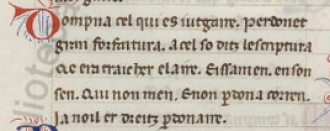 Dompna cel qui es iutgaire. perdonet
gran forfaitura. a cel so ditz lescriptura
cle era traicher elaire. Eissamen. en son
sen. Qui non men. Enon pdona corren.
Ja noil er dreitz pdonaire.